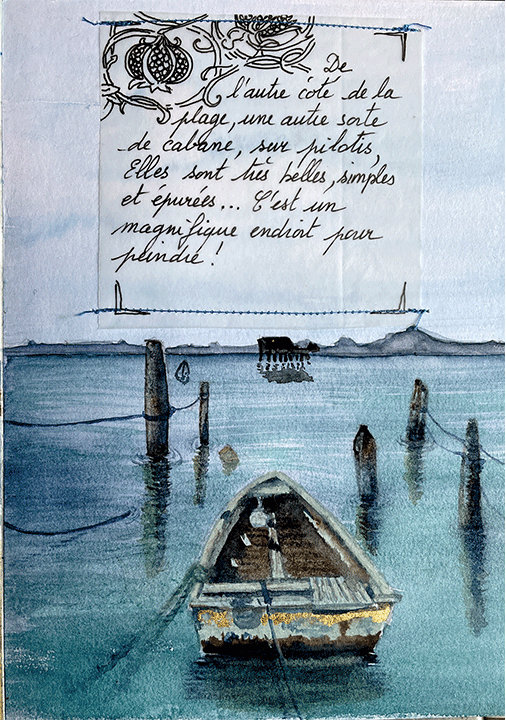 De
l'autre côté de la
plage, une autre sorte
de cabane, sur pilotis,
Elles sont très belles, simples
et épurées... C'est un
magnifique endroit pour
peindre !